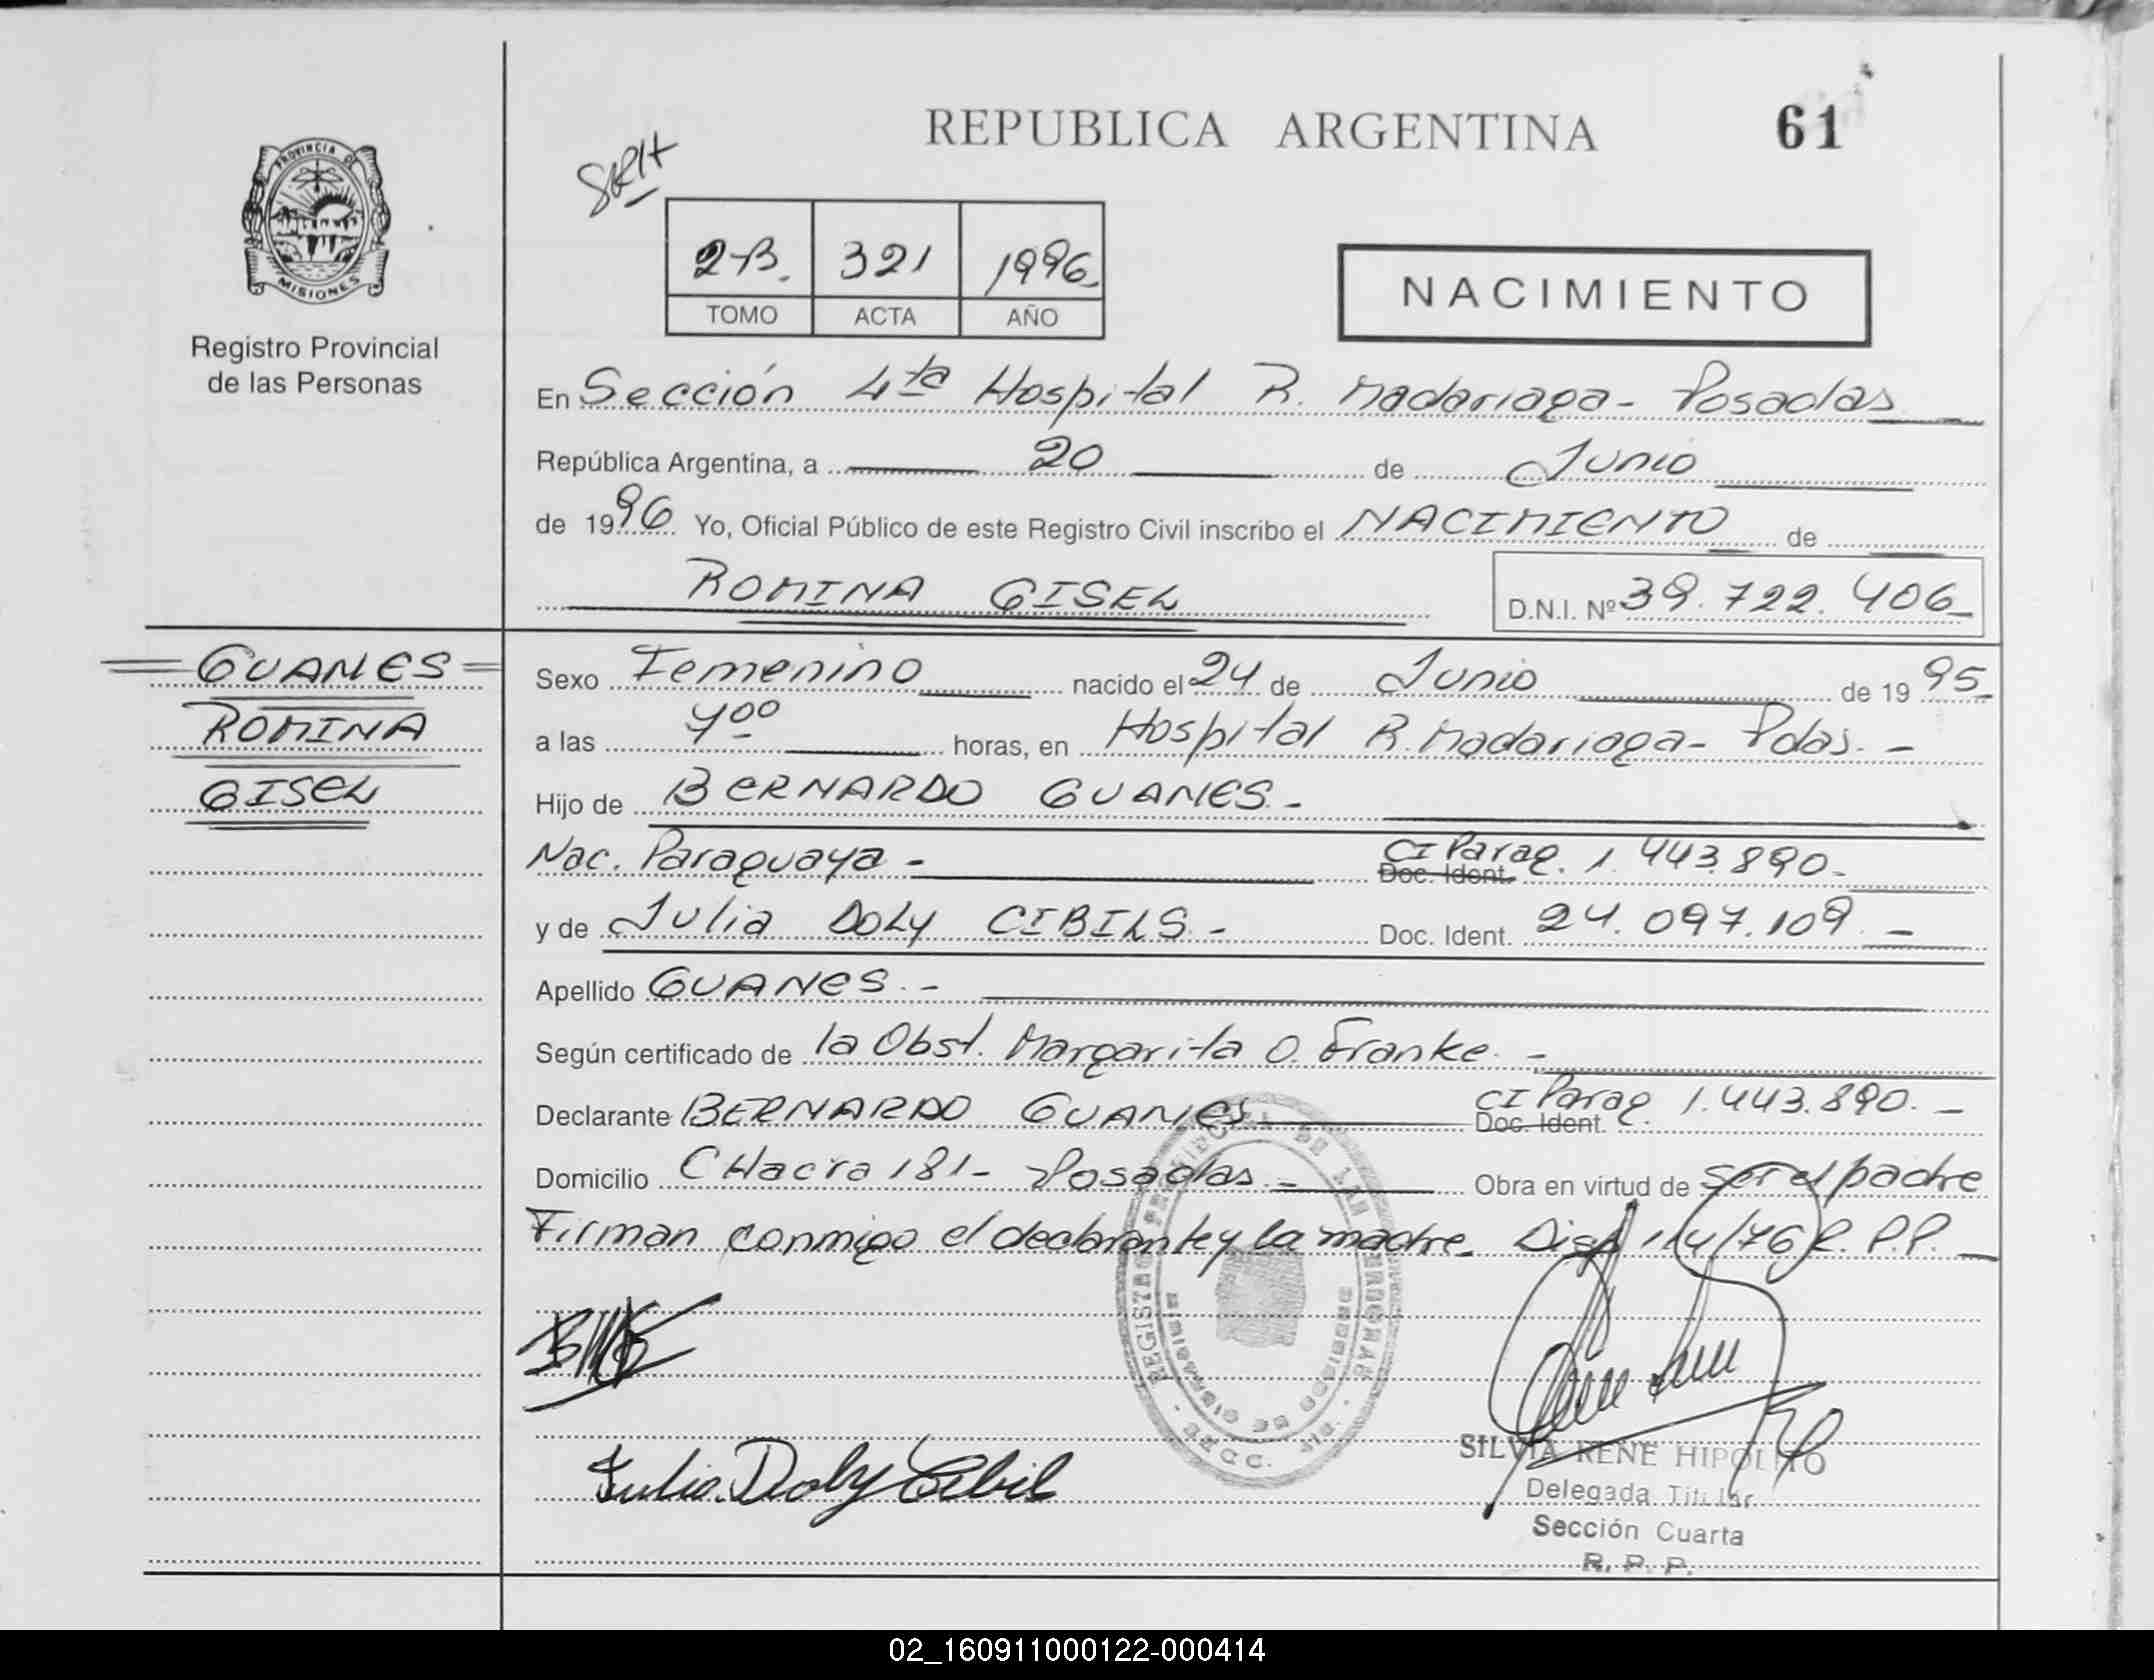 REPUBLICA ARGENTINA 61
PROVINCIA DE
MISIONES
Registro Provincial
de las Personas
2-B. 321 1996.
TOMO ACTA AÑO
NACIMIENTO
En Sección 4ta Hospital R. Madariaga - Posadas
República Argentina, a 20 de Junio
de 1996. Yo, Oficial Público de este Registro Civil inscribo el NACIMIENTO de
ROMINA GISEL D.N.I. Nº 39.722.406
GUANES
ROMINA
GISEL
Sexo Femenino nacido el 24 de Junio de 1995.
a las 4⁰⁰ horas, en Hospital R. Madariaga - Pdas. -
Hijo de BERNARDO GUANES. -
Nac. Paraguaya - CI Parag. 1.443.890 -
Doc. Ident.
y de Julia DOLY CIBILS. - Doc. Ident. 24.097.109. -
Apellido GUANES. -
Según certificado de la Obst. Margarita O. Franke. -
Declarante BERNARDO GUANES CI Parag. 1.443.890. -
Doc. Ident.
Domicilio CHacra 181 - Posadas. - Obra en virtud de ser el padre
Firman conmigo el declarante y la madre. Disp. 114/76 R.P.P.
Julia Doly Cibils
SILVIA RENE HIPOLITO
Delegada Titular
Sección Cuarta
R. P. P.
02_160911000122-000414